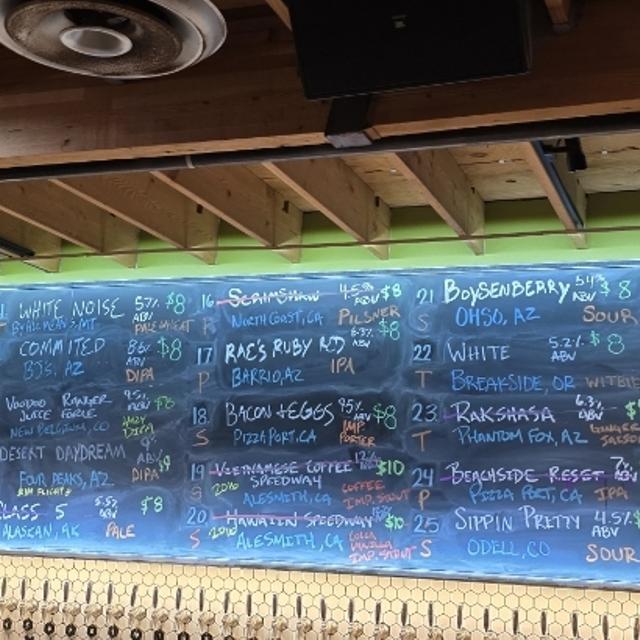 WHITE NOISE 5% ABV $8
MT PALE WHEAT
COMMITED 8.5% ABV $8
BJ'S, AZ DIPA
VOODOO RANGER
JUICE FORCE 9.5% ABV
NEW BELGIUM, CO HAZY DIPA
DESERT DAYDREAM 9% $9
FOUR PEAKS, AZ DIPA
RIM FLIGHT
CLASS 5 5.5% ABV $8
ALASKAN, AK PALE
16 SCRIMSHAW 4.5% ABV $8
P NORTH COAST, CA PILSNER
17 RAE'S RUBY RED $8
P BARRIO, AZ IPA
18 BACON + EGGS 9.5% ABV $8
S PIZZA PORT, CA IMP. PORTER
19 VIETNAMESE COFFEE $10
SPEEDWAY
S ALESMITH, CA COFFEE IMP. STOUT
20 HAWAIIN SPEEDWAY $10
S ALESMITH, CA VANILLA IMP. STOUT
21 BOYSENBERRY 5.4% ABV $8
S OHSO, AZ SOUR
22 WHITE 5.2% ABV $8
T BREAKSIDE, OR WITBIE
23 RAKSHASA 6.3% ABV
T PHANTOM FOX, AZ
24 BEACHSIDE RESET 7% ABV
P PIZZA PORT, CA IPA
25 SIPPIN PRETTY 4.5% ABV
S ODELL, CO SOUR